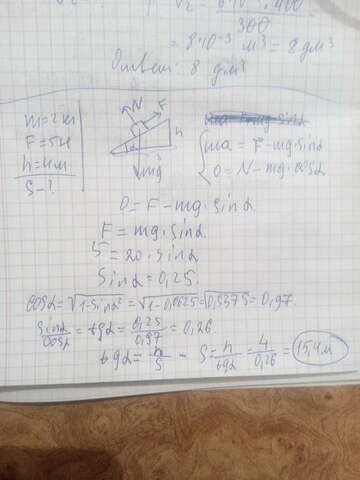 V₂ = 6·10⁻³·400
300
= 8·10⁻³ м³ = 8 дм³
Ответ: 8 дм³
m=2кг
F=5Н
h=4м
S-?
N F
h
α
mg
ma = F-mg·sinα
0 = N-mg·cosα
0=F-mg·sinα
F=mg·sinα
5=20·sinα
sinα=0,25
cosα=√1-sinα² = √1-0,0625 = √0,9375 = 0,97
sinα/cosα = tgα = 0,25/0,97 = 0,26
tgα = h/S - S = h/tgα = 4/0,26 = 15,4м